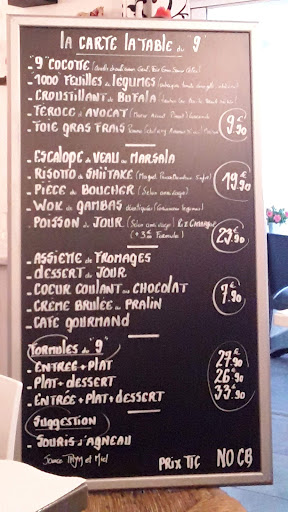 LA CARTE LA TABLE du "9"
- "9" COCOTTE
- 1000 FEUILLES de LÉGUMES
- CROUSTILLANT de BUFALA
- FEROCE d'AVOCAT
- FOIE GRAS FRAIS
9€90
- ESCALOPE de VEAU au MARSALA
- RISOTTO de SHIITAKE
- PIÈCE du BOUCHER (Selon arrivage)
- WOK de GAMBAS
19€90
- POISSON du JOUR (Selon arrivage)
(+3€ Formule)
23€90
- ASSIETTE de FROMAGES
- DESSERT du JOUR
- COEUR COULANT au CHOCOLAT
- CRÈME BRULÉE au PRALIN
- CAFÉ GOURMAND
9€90
FORMULES du "9"
- ENTRÉE + PLAT 27€90
- PLAT + DESSERT 26€90
- ENTRÉE + PLAT + DESSERT 33€90
SUGGESTION
- SOURIS d'AGNEAU
Sauce Thym et Miel
PRIX TTC NO CB